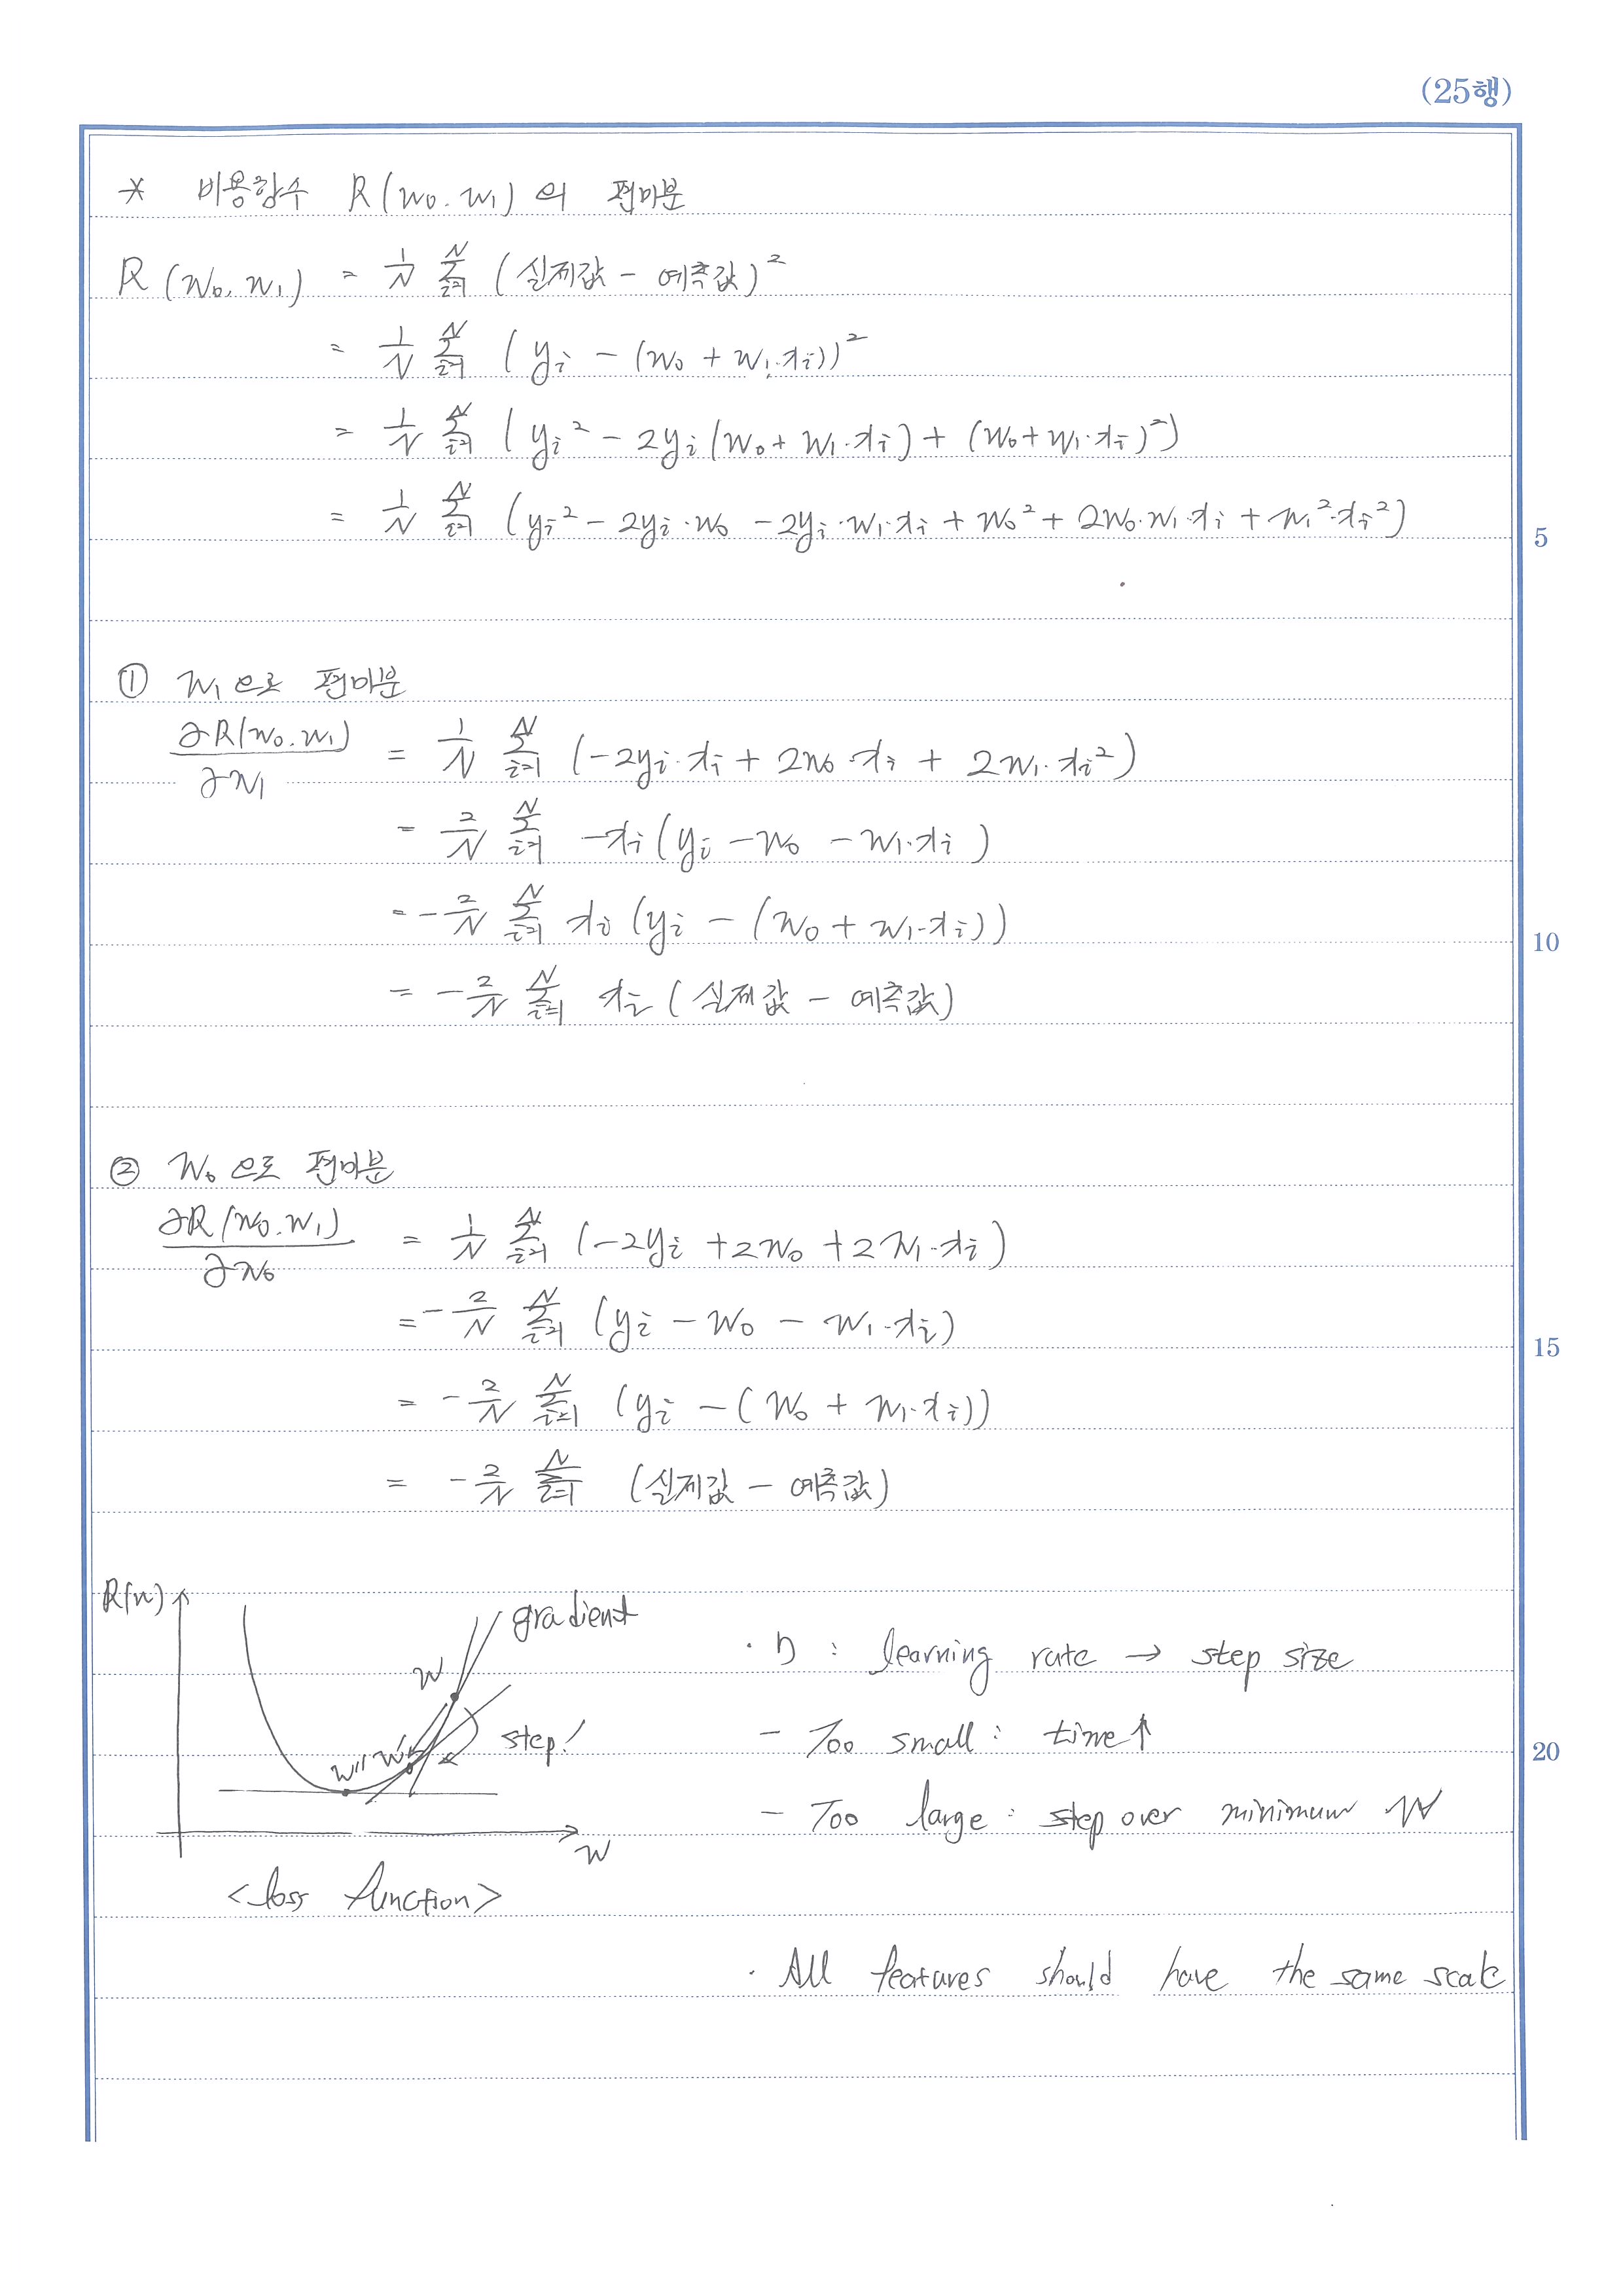 (25행)
* 비용함수 R(w₀.w₁)의 편미분
R(w₀.w₁) = 1/N Σᵢ₌₁ᴺ (실제값 - 예측값)²
= 1/N Σᵢ₌₁ᴺ (yᵢ - (w₀ + w₁·xᵢ))²
= 1/N Σᵢ₌₁ᴺ (yᵢ² - 2yᵢ(w₀ + w₁·xᵢ) + (w₀ + w₁·xᵢ)²)
= 1/N Σᵢ₌₁ᴺ (yᵢ² - 2yᵢ·w₀ - 2yᵢ·w₁·xᵢ + w₀² + 2w₀·w₁·xᵢ + w₁²·xᵢ²)
5
① w₁으로 편미분
∂R(w₀.w₁)/∂w₁ = 1/N Σᵢ₌₁ᴺ (-2yᵢ·xᵢ + 2w₀·xᵢ + 2w₁·xᵢ²)
= 2/N Σᵢ₌₁ᴺ -xᵢ(yᵢ - w₀ - w₁·xᵢ)
= -2/N Σᵢ₌₁ᴺ xᵢ(yᵢ - (w₀ + w₁·xᵢ))
10
= -2/N Σᵢ₌₁ᴺ xᵢ(실제값 - 예측값)
② w₀으로 편미분
∂R(w₀.w₁)/∂w₀ = 1/N Σᵢ₌₁ᴺ (-2yᵢ + 2w₀ + 2w₁·xᵢ)
= -2/N Σᵢ₌₁ᴺ (yᵢ - w₀ - w₁·xᵢ)
15
= -2/N Σᵢ₌₁ᴺ (yᵢ - (w₀ + w₁·xᵢ))
= -2/N Σᵢ₌₁ᴺ (실제값 - 예측값)
R(w)
gradient
w
step!
w'' w'
w
<loss function>
· η : learning rate → step size
- Too small : time↑
- Too large : step over minimum W
20
· All features should have the same scale